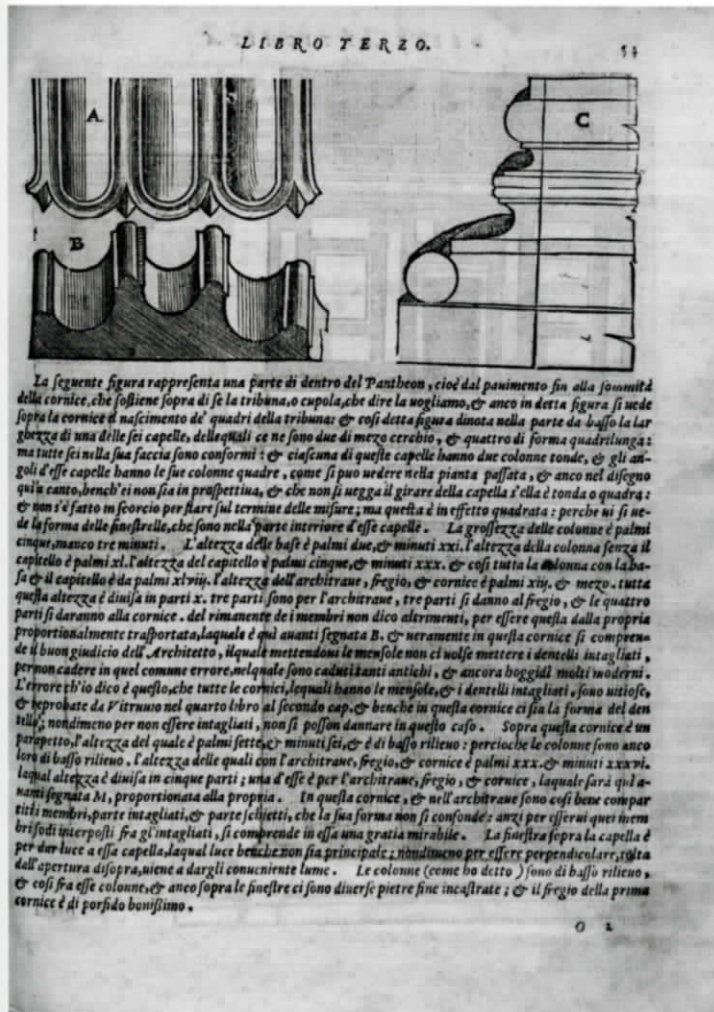 LIBRO TERZO.
A
C
B
La seguente figura rappresenta una parte di dentro del Pantheon, cioè dal pauimento fin alla sommità
della cornice, che sostiene sopra di se la tribuna, o cupola, che dire la uogliamo, & anco in detta figura si uede
sopra la cornice il nascimento de' quadri della tribuna: & cosi detta figura dinota nella parte da basso la lar
ghezza di una delle sei capelle, delle quali ce ne sono due di mezo cerchio, & quattro di forma quadrilunga:
ma tutte sei nella sua faccia sono conformi: & ciascuna di queste capelle hanno due colonne tonde, & gli an-
goli d'esse capelle hanno le sue colonne quadre, come si puo uedere nella pianta passata, & anco nel disegno
qui a canto, bench'ei non sia in prospettiua, & che non si uegga il girare della capella s'ella è tonda o quadra:
& non s'è fatto in scorcio per stare sul termine delle misure; ma questa è in effetto quadrata: perche ui si ue-
de la forma delle finestrelle, che sono nella parte interiore d'esse capelle. La grossezza delle colonne è palmi
cinque, manco tre minuti. L'altezza delle base è palmi due, & minuti xxi. l'altezza della colonna senza il
capitello è palmi xl. l'altezza del capitello è palmi cinque, & minuti xxx. & cosi tutta la colonna con la ba-
sa & il capitello è da palmi xlviij. l'altezza dell'architraue, fregio, & cornice è palmi xiij. & mezo. tutta
questa altezza è diuisa in parti x. tre parti sono per l'architraue, tre parti si danno al fregio, & le quattro
parti si daranno alla cornice. del rimanente de i membri non dico altrimenti, per essere questa dalla propria
proportionalmente trasportata, laquale è quì auanti segnata B. & ueramente in questa cornice si compren-
de il buon giudicio dell'Architetto, ilquale mettendoui le mensole non ci uolse mettere i dentelli intagliati,
per non cadere in quel comune errore, nelquale sono caduti tanti antichi, & ancora hoggidì molti moderni.
L'errore ch'io dico è questo, che tutte le cornici, lequali hanno le mensole, & i dentelli intagliati, sono uitiose,
& reprobate da Vitruuio nel quarto libro al secondo cap. & benche in questa cornice ci sia la forma del den
tello; nondimeno per non essere intagliati, non si posson dannare in questo caso. Sopra questa cornice è un
parapetto, l'altezza del quale è palmi sette, & minuti sei, & è di basso rilieuo: percioche le colonne sono anco
loro di basso rilieuo. l'altezza delle quali con l'architraue, fregio, & cornice è palmi xxx. & minuti xxxvi.
laqual altezza è diuisa in cinque parti; una d'esse è per l'architraue, fregio, & cornice, laquale sarà quì a-
uanti segnata M, proportionata alla propria. In questa cornice, & nell'architraue sono cosi bene compar
titi i membri, parte intagliati, & parte schietti, che la sua forma non si confonde: anzi per esserui quei mem
bri sodi interposti fra gl'intagliati, si comprende in essa una gratia mirabile. La finestra sopra la capella è
per dar luce a essa capella, laqual luce benche non sia principale; nondimeno per essere perpendicolare, tolta
dall'apertura disopra, uiene a dargli conueniente lume. Le colonne (come ho detto) sono di basso rilieuo,
& cosi fra esse colonne, & anco sopra le finestre ci sono diuerse pietre fine incastrate; & il fregio della prima
cornice è di porfido bonissimo.
O 2